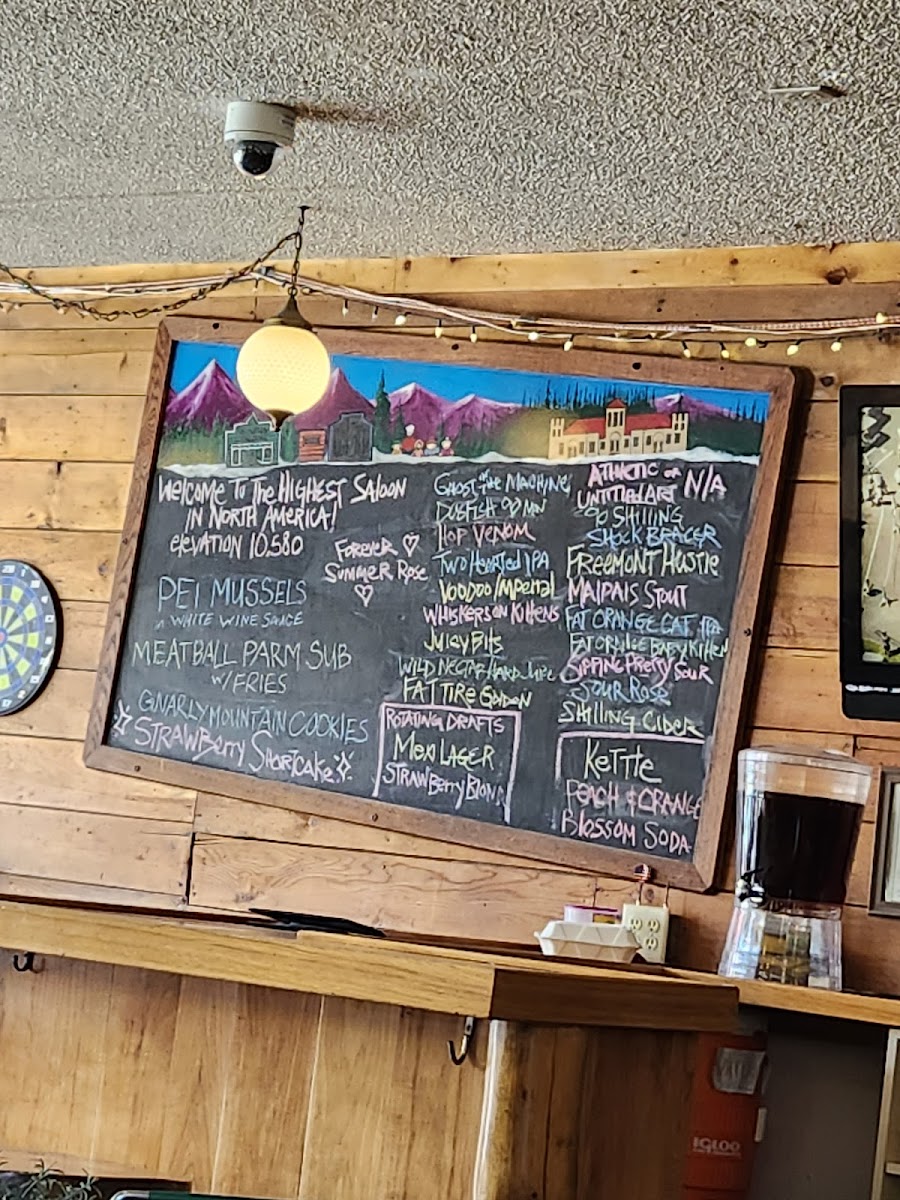 WELCOME TO THE HIGHEST SALOON
IN NORTH AMERICA!
ELEVATION 10,580
FOREVER ♡
SUMMER ROSE
♡
PEI MUSSELS
WHITE WINE SAUCE
MEATBALL PARM SUB
W/FRIES
GNARLY MOUNTAIN COOKIES
STRAWBERRY SHORTCAKE
GHOST OF THE MACHINE
DOGFISH 90 MIN
HOP VENOM
TWO HEARTED IPA
VOODOO IMPERIAL
WHISKERS ON KITTENS
JUICY BITS
WILD NECTAR HARD JUICE
FAT TIRE
ROTATING DRAFTS
MEX LAGER
STRAWBERRY BLOND
ATHLETIC OR N/A
UNTITLED ART
90 SHILLING
SHOCK BRACER
FREEMONT HUSTLE
MALPAIS STOUT
FAT ORANGE CAT
FAT ORANGE BABY KITTEN
SIPPING PRETTY SOUR
SOUR ROSE
SHILLING CIDER
KETTLE
PEACH & ORANGE
BLOSSOM SODA
IGLOO